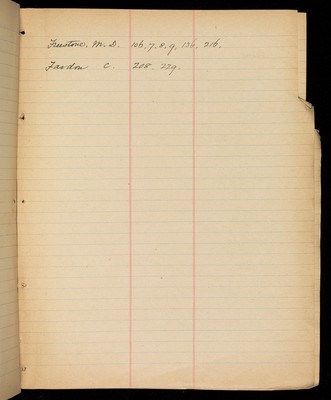 Freestone, M. D. 106. 7. 8. 9. 136. 216.
Fardon C. 208. 229.